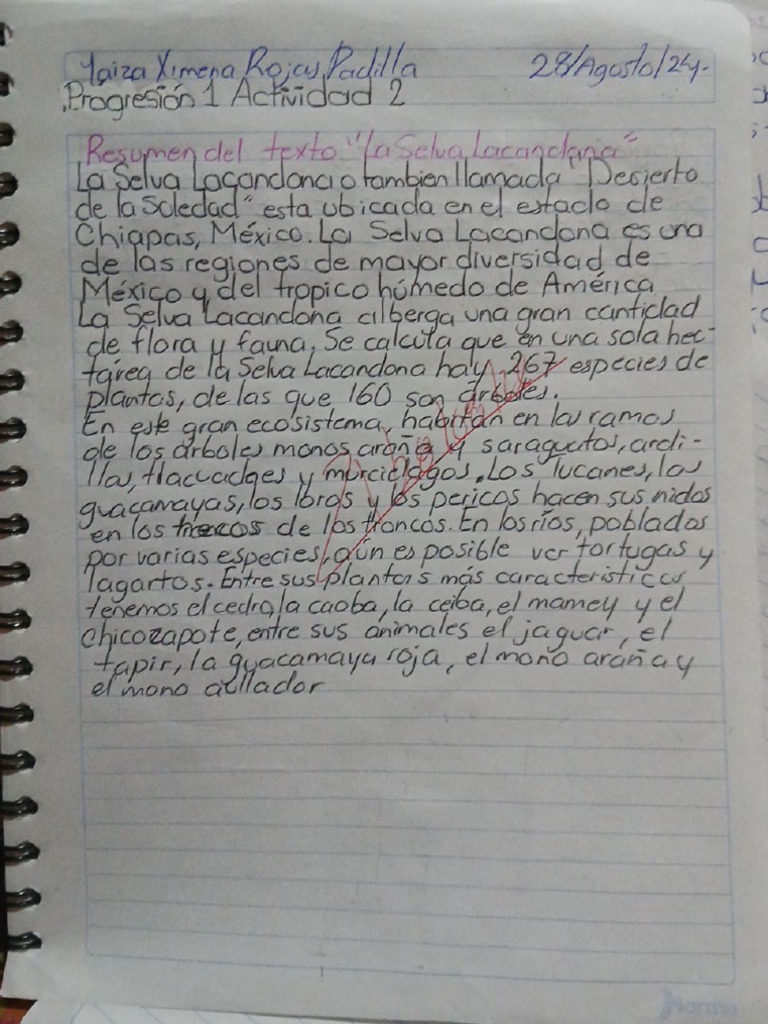 Yaiza Ximena Rojas Padilla 28/Agosto/24.
Progresión 1 Actividad 2
Resumen del texto "La Selva Lacandona"
La Selva Lacandona o tambien llamada "Desierto
de la Soledad" esta ubicada en el estado de
Chiapas, México. La Selva Lacandona es una
de las regiones de mayor diversidad de
México y del tropico húmedo de América
La Selva Lacandona alberga una gran cantidad
de flora y fauna, Se calcula que en una sola hec-
tárea de la Selva Lacandona hay 267 especies de
plantas, de las que 160 son árboles.
En este gran ecosistema, habitán en las ramas
de los árboles monos araña y saraguatos, ardi-
llas, tlacuaches y morcielagos. Los tucanes, las
guacamayas, los loros y los pericos hacen sus nidos
en los huecos de los troncos. En los ríos, poblados
por varias especies, aún es posible ver tortugas y
lagartos. Entre sus plantas más caracteristicas
tenemos el cedro, la caoba, la ceiba, el mamey y el
chicozapote, entre sus animales el jaguar, el
tapir, la guacamaya roja, el mono araña y
el mono aullador
Norma